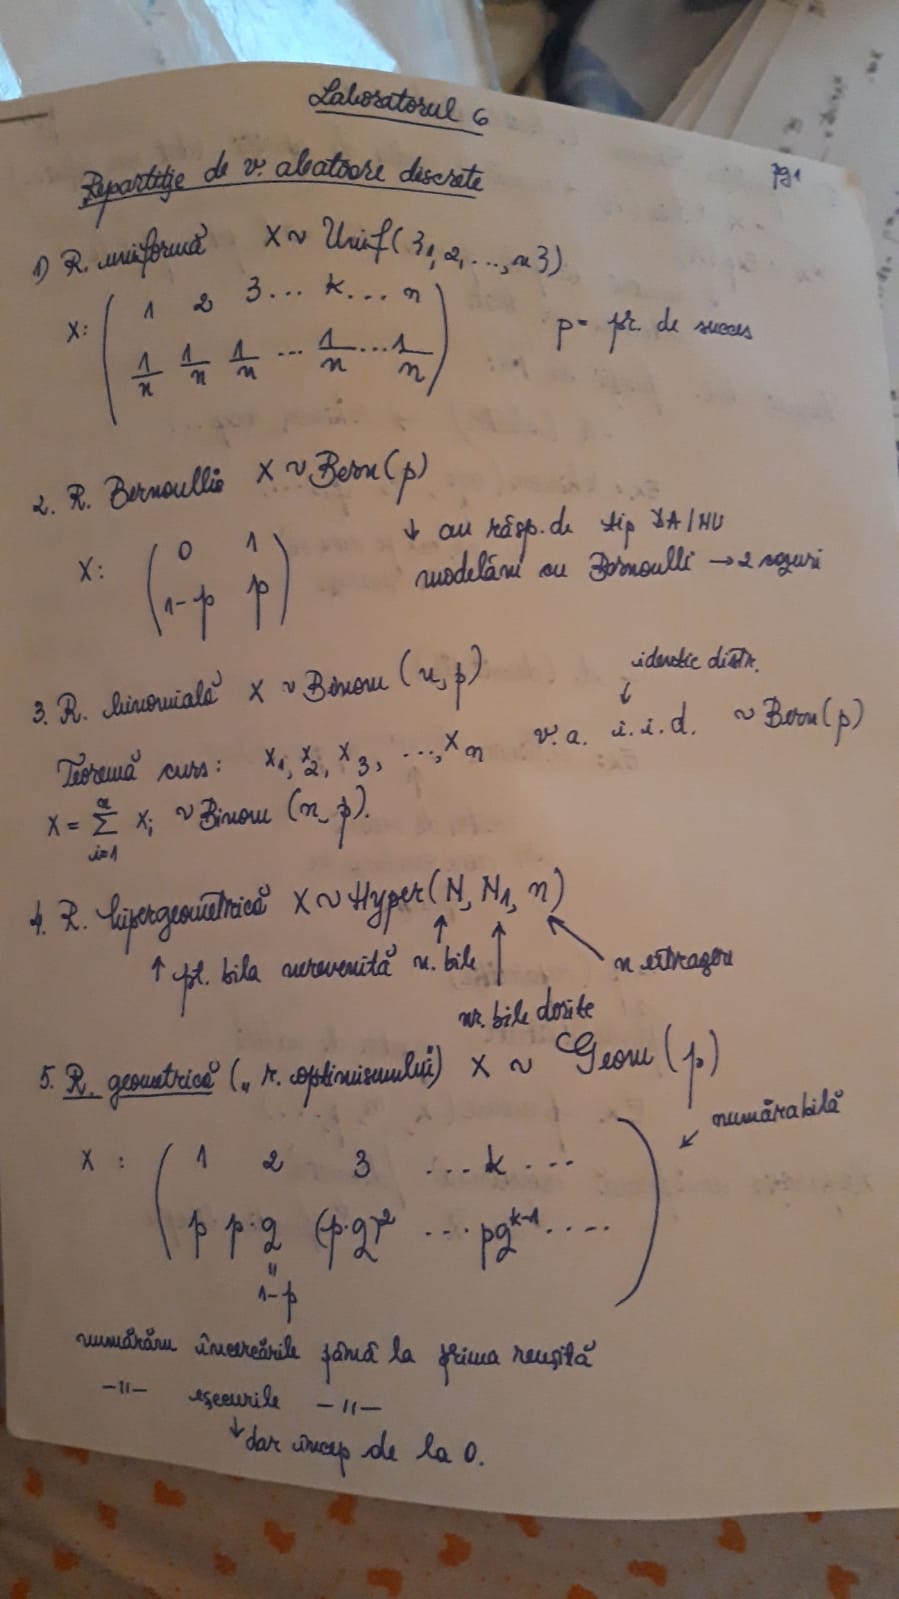 Laboratorul 6
pg 1
Repartiție de v. aleatoare discrete
1) R. uniformă X ~ Unif({1, 2, ..., n})
X: ( 1 2 3 ... k ... n )
( 1/n 1/n 1/n ... 1/n ... 1/n )
p = pr. de succes
2. R. Bernoullie X ~ Bern(p)
X: ( 0 1 )
( 1-p p )
↓ au răsp. de tip DA/NU
modelăm cu Bernoulli →
3. R. binomială X ~ Binom (n, p)
identic distr.
↓
Teoremă curs: X1, X2, X3, ..., Xn v.a. i.i.d. ~ Bern(p)
X = Σ i=1 n Xi ~ Binom (n, p).
4. R. hipergeometrică X ~ Hyper(N, N1, n)
↑ pt. bila nerevenită n. bile
n extrageri
nr. bile dorite
5. R. geometrică („ r. optimismului) X ~ Geom (p)
numărabilă
X : ( 1 2 3 ... k ... )
( p p·q (p·q)² ... pq^k-1 .... )
"
1-p
numărăm încercările până la prima reușită
-"- eșecurile -"-
↓ dar încep de la 0.